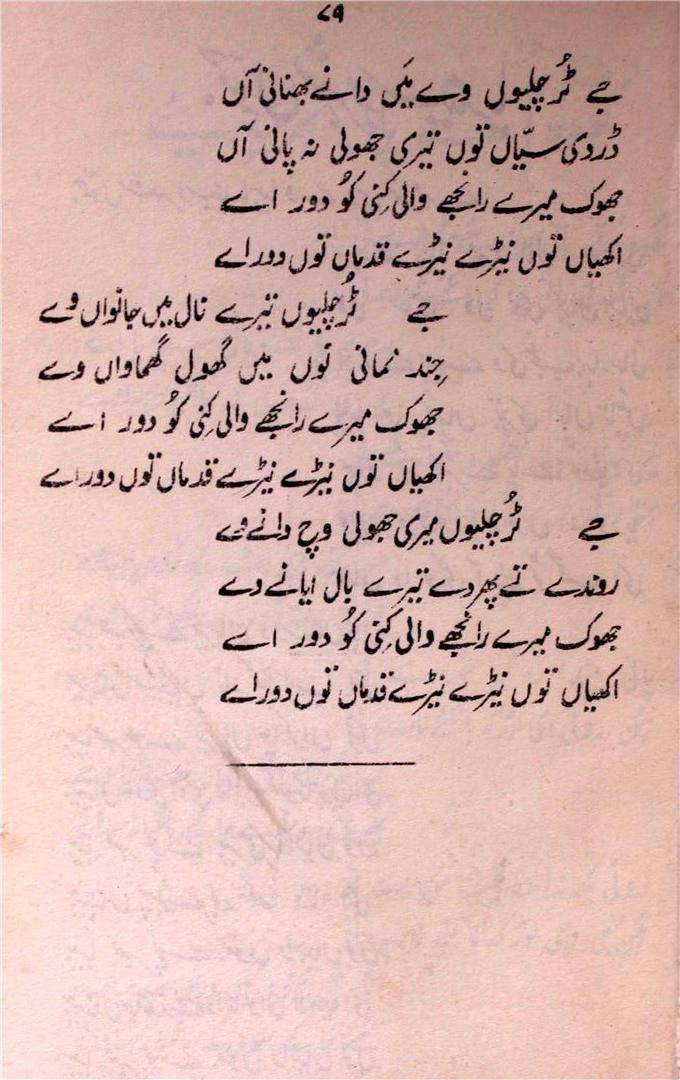 ۸۹
جے ٹُر چلیوں وے مَیں دانے بھنانی آں
ڈردی سیّاں توں تیری جھولی نہ پانی آں
جھوک میرے رانجھے والی کِنّی کُو دور اے
اکھیاں توں نیڑے نیڑے قدماں توں دور اے
جے ٹُر چلیوں تیرے نال میں جانواں وے
جِند نمانی توں میں گھول گھماواں وے
جھوک میرے رانجھے والی کِنّی کُو دور اے
اکھیاں توں نیڑے نیڑے قدماں توں دور اے
جے ٹُر چلیوں میری جھولی وچ دانے وے
روندے تے پھردے تیرے بال ایانے وے
جھوک میرے رانجھے والی کِنّی کُو دور اے
اکھیاں توں نیڑے نیڑے قدماں توں دور اے